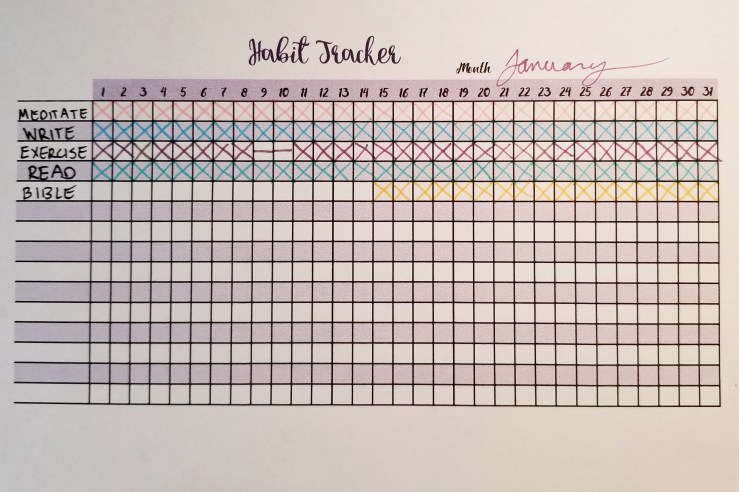 Habit Tracker
Month January
1 2 3 4 5 6 7 8 9 10 11 12 13 14 15 16 17 18 19 20 21 22 23 24 25 26 27 28 29 30 31
MEDITATE
WRITE
EXERCISE
READ
BIBLE